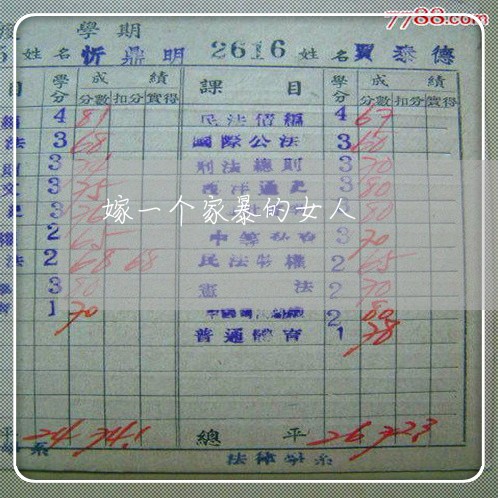 7788.com
學期
5 姓名 忻鼎明 2616 姓名 賈泰德
目 學分 成績 課目 學分 成績
分數 扣分 實得 分數 扣分 實得
4 81 民法債編 4 67
法 3 68 國際公法 3 60
3 刑法總則 3 70
3 75 3 80
3 3 80
嫁一个家暴的女人
2 65 3 70
法 2 68 68 民法物權 2 65
3 80 憲法 2 70
1 70 2 80
普通體育 1 78
平 24 74.1 總平 26 72.3
系 法律學系